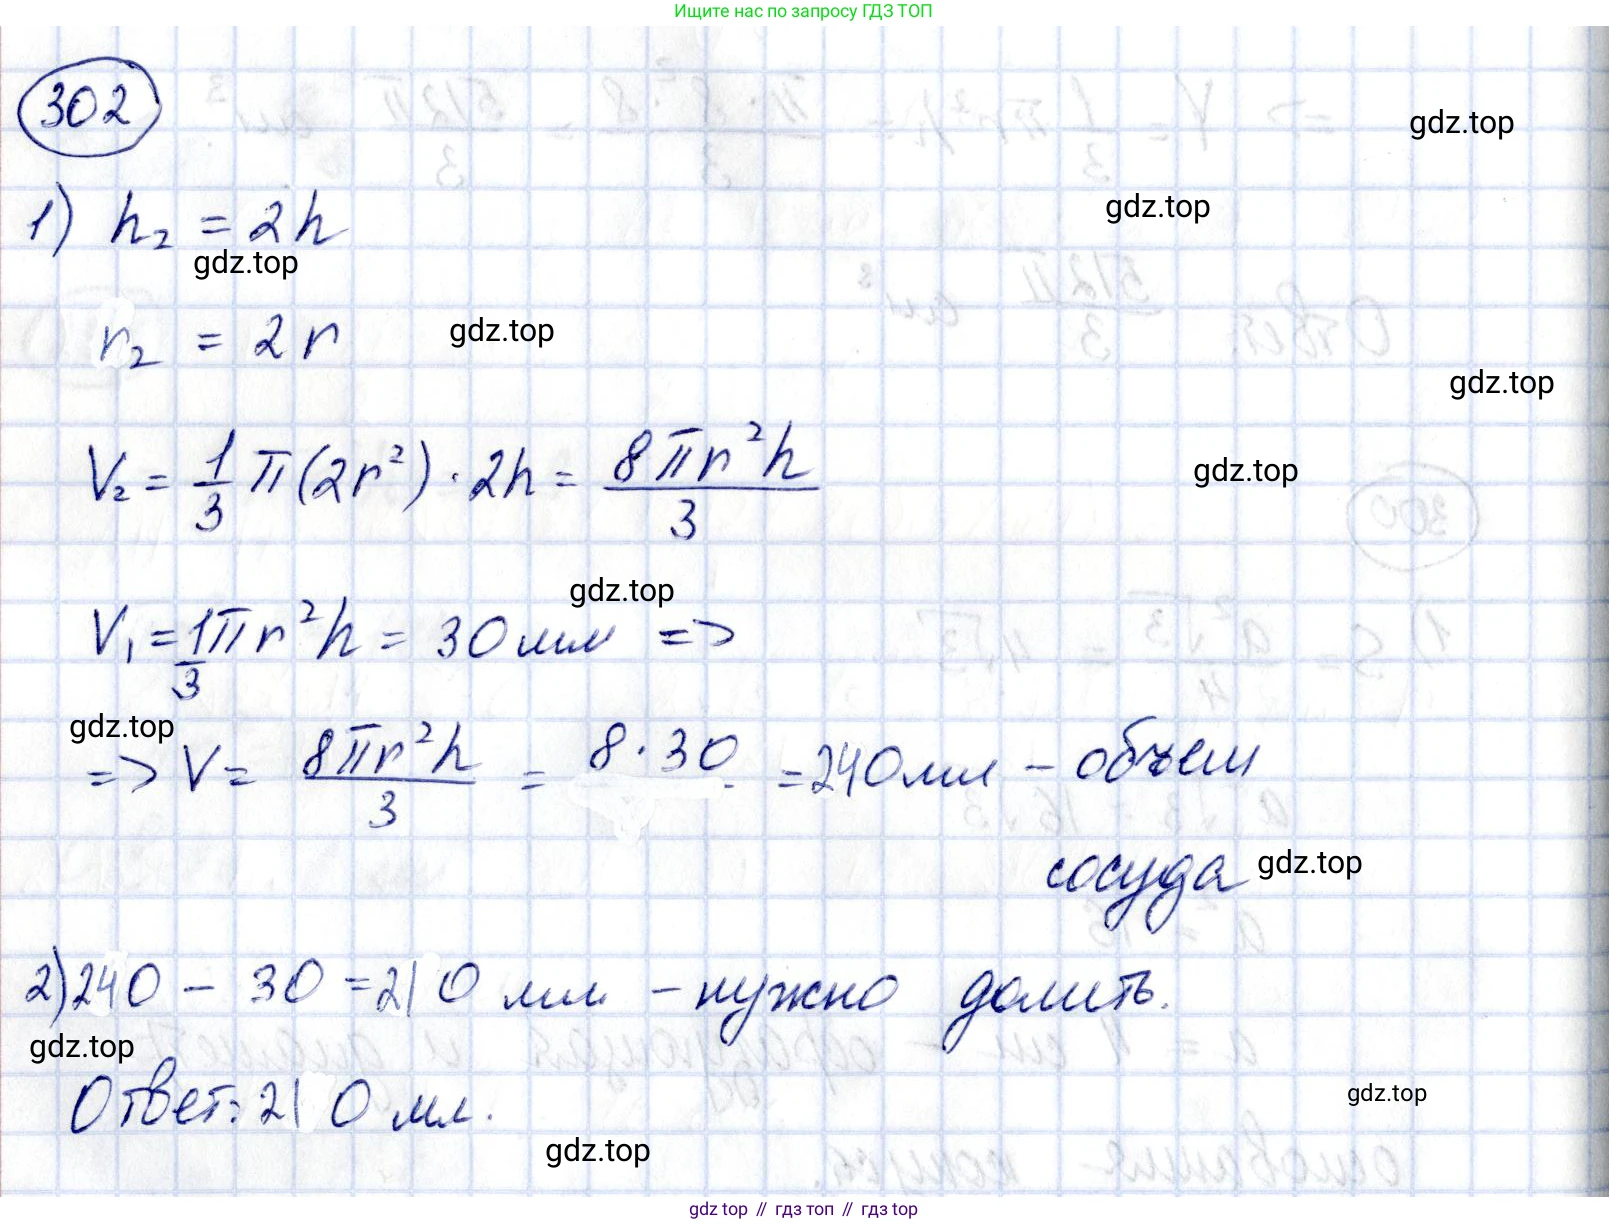 Ищите нас по запросу ГДЗ ТОП
302
gdz.top
gdz.top
1) h₂ = 2h
gdz.top
r₂ = 2r
gdz.top
gdz.top
V₂ = 1/3 π(2r²) · 2h = 8πr²h/3
gdz.top
gdz.top
V₁ = 1/3 πr²h = 30 мл =>
gdz.top
=> V = 8πr²h/3 = 8·30 = 240 мл – объем
сосуда
gdz.top
2) 240 – 30 = 210 мл – нужно долить.
gdz.top
gdz.top
Ответ: 210 мл.
gdz.top
gdz top // гдз топ // гдз top